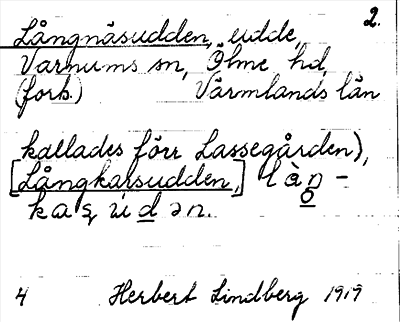 2.
Långnäsudden, udde,
Varnums sn, Ölme hd,
(forts.) Värmlands län
kallades förr Lassegården),
[Långkarsudden,]
4 Herbert Lindberg 1919